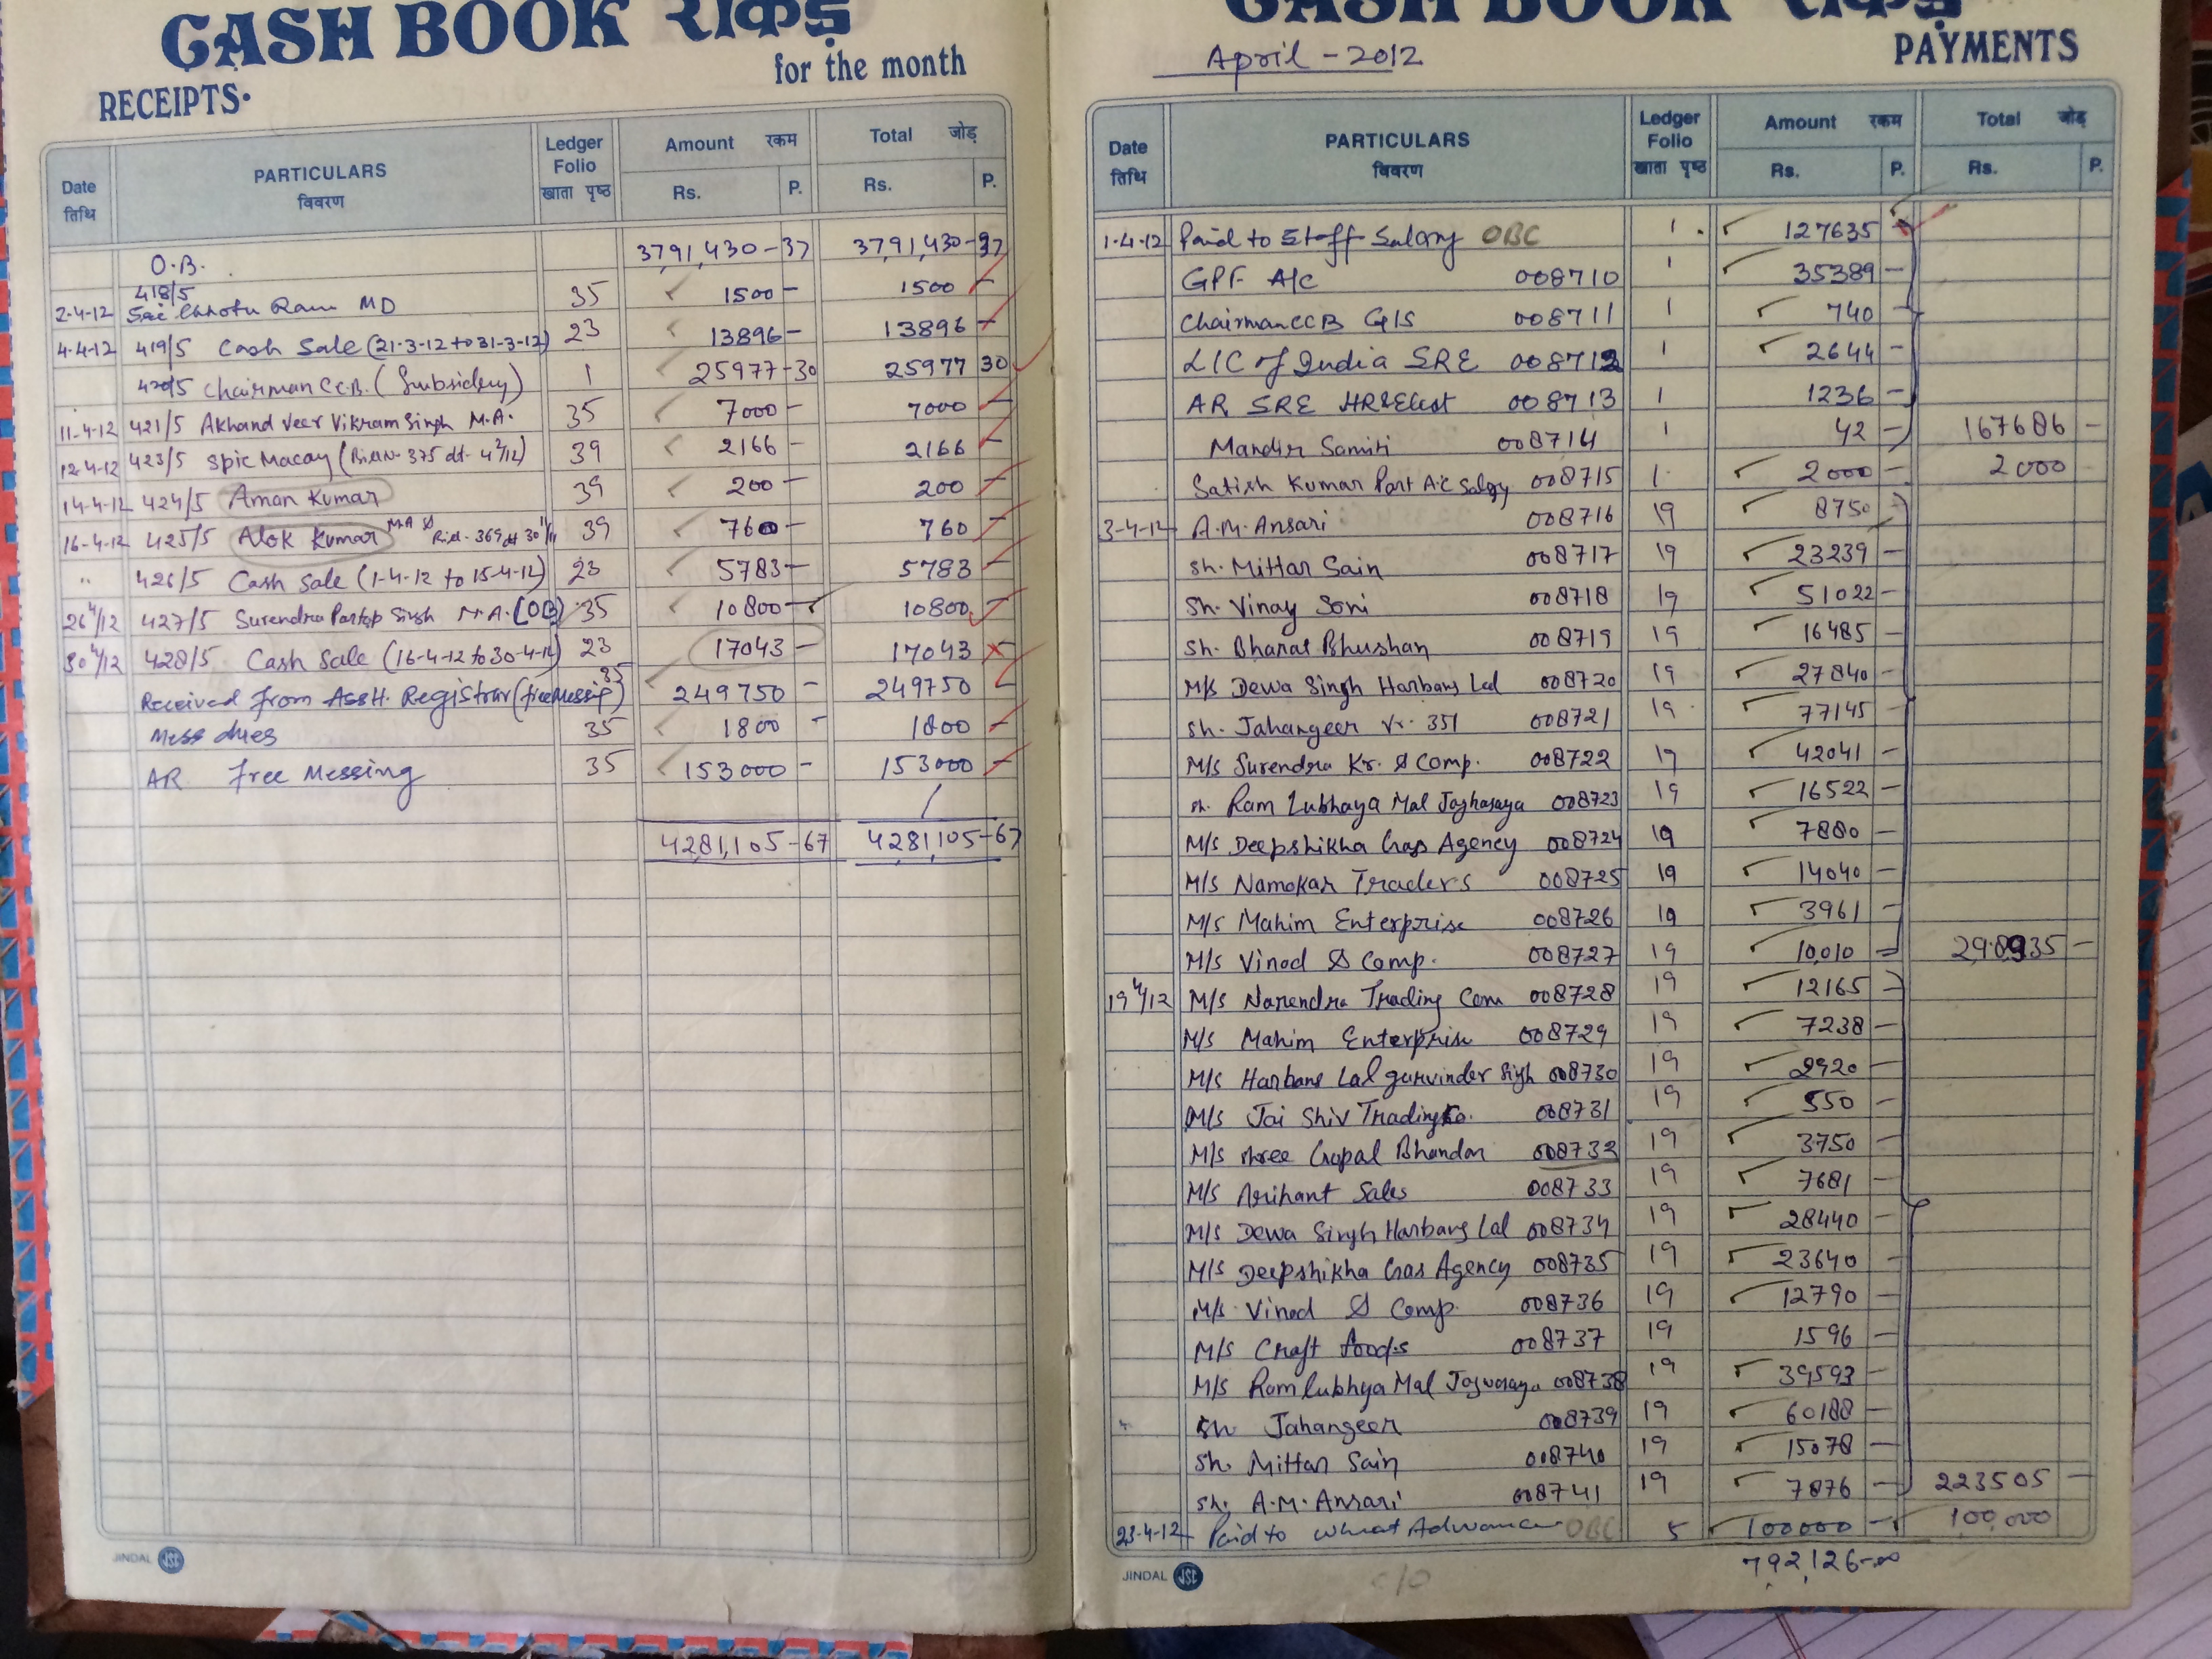 CASH BOOK रोकड़
for the month
RECEIPTS
Date तिथि PARTICULARS विवरण Ledger Folio खाता पृष्ठ Amount रकम Rs. P. Total जोड़ Rs. P.
O.B. 3791,430-37 3791,430-37
418/5
2-4-12 Sri Chhotu Ram MD 35 1500- 1500-
4-4-12 419/5 Cash Sale (21-3-12 to 31-3-12) 23 13896- 13896-
420/5 Chairman C.C.B. (Subsidery) 1 25977-30 25977 30
11-4-12 421/5 Akhand Veer Vikram Singh M.A. 35 7000- 7000-
12-4-12 423/5 Spic Macay (Bill No- 375 dt- 4/12) 39 2166- 2166-
14-4-12 424/5 Aman Kumar 39 200- 200-
16-4-12 425/5 Alok Kumar M.A 369 dt 30 39 760- 760-
" 426/5 Cash Sale (1-4-12 to 15-4-12) 23 5783- 5783-
26 4/12 427/5 Surendra Partap Singh M.A. (OB) 35 10800- 10800-
30 4/12 428/5 Cash Sale (16-4-12 to 30-4-12) 23 17043- 17043 ×
Received from Asstt. Registrar (free Messing) 35 249750- 249750
Mess dues 35 1800- 1800-
AR Free Messing 35 153000- 153000-
4281,105-67 4281,105-67
JINDAL JSC
CASH BOOK रोकड़
April-2012
PAYMENTS
Date तिथि PARTICULARS विवरण Ledger Folio खाता पृष्ठ Amount रकम Rs. P. Total जोड़ Rs. P.
1-4-12 Paid to Staff Salary OBC 1 127635
GPF A/c 008710 1 35389-
Chairman CCB GIS 008711 1 740-
LIC of India SRE 008712 1 2644-
AR SRE HR&Elect 008713 1 1236-
Mandir Samiti 008714 1 42- 167686-
Satish Kumar Part A/c Salary 008715 1 2000- 2000
3-4-12 A.M. Ansari 008716 19 8750-
Sh. Mittar Sain 008717 19 23239-
Sh. Vinay Soni 008718 19 51022-
Sh. Bharat Bhushan 008719 19 16485-
M/s Dewa Singh Harbans Lal 008720 19 27840-
Sh. Jahangeer Vr. 351 008721 19 77145-
M/s Surendra Kr. & Comp. 008722 19 42041-
Sh. Ram Lubhaya Mal 008723 19 16522-
M/s Deepshikha Gas Agency 008724 19 7880-
M/s Namokar Traders 008725 19 14040-
M/s Mahim Enterprise 008726 19 3961-
M/s Vinod & Comp. 008727 19 10,010- 298935-
19 4/12 M/s Narendra Trading Com 008728 19 12165-
M/s Mahim Enterprise 008729 19 7238-
M/s Harbans Lal gurvinder Sigh 008730 19 2920-
M/s Jai Shiv Trading Co. 008731 19 550-
M/s Shree Gopal Bhandar 008732 19 3750-
M/s Arihant Sales 008733 19 7681-
M/s Dewa Singh Harbans Lal 008734 19 28440-
M/s Deepshikha Gas Agency 008735 19 23640-
M/s Vinod & Comp. 008736 19 12790-
M/s Craft foods 008737 19 1596-
M/s Ram lubhya Mal 008738 19 39593-
Sh Jahangeer 008739 19 60188-
Sh. Mittar Sain 008740 19 15078-
Sh. A.M. Ansari 008741 19 7876- 223505-
23-4-12 Paid to wheat Advance OBC 5 100000- 100,000
792,126-00
JINDAL JSC
c/o